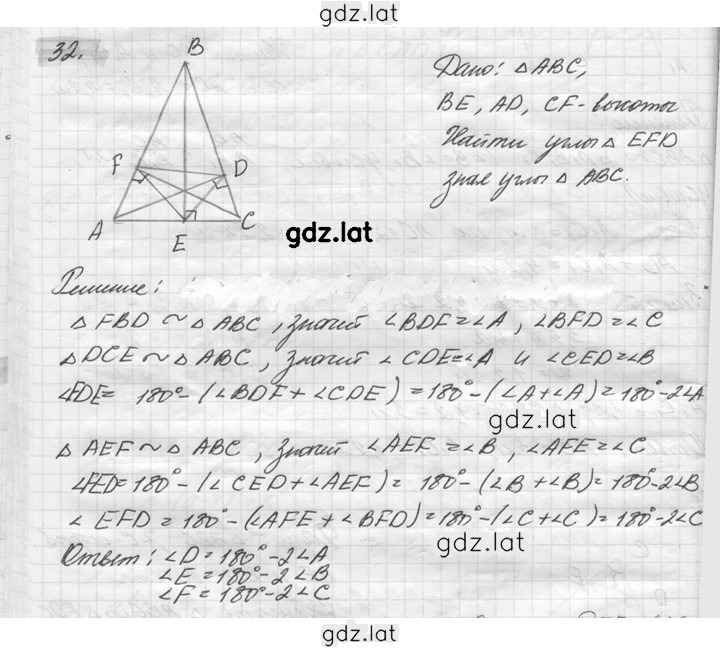 gdz.lat
32.
B
F
D
A
E
C
Дано: △ABC,
BE, AD, CF - высоты
Найти углы △ EFD
зная углы △ ABC.
gdz.lat
Решение:
△ FBD ~ △ ABC, значит ∠BDF = ∠A, ∠BFD = ∠C
△DCE ~ △ABC, значит ∠CDE = ∠A и ∠CED = ∠B
∠FDE = 180° - (∠BDF + ∠CDE) = 180° - (∠A + ∠A) = 180° - 2∠A
gdz.lat
△ AEF ~ △ ABC, значит ∠AEF = ∠B, ∠AFE = ∠C
∠FED = 180° - (∠CED + ∠AEF) = 180° - (∠B + ∠B) = 180° - 2∠B
∠ EFD = 180° - (∠AFE + ∠BFD) = 180° - (∠C + ∠C) = 180° - 2∠C
gdz.lat
Ответ: ∠D = 180° - 2∠A
∠E = 180° - 2∠B
∠F = 180° - 2∠C
gdz.lat